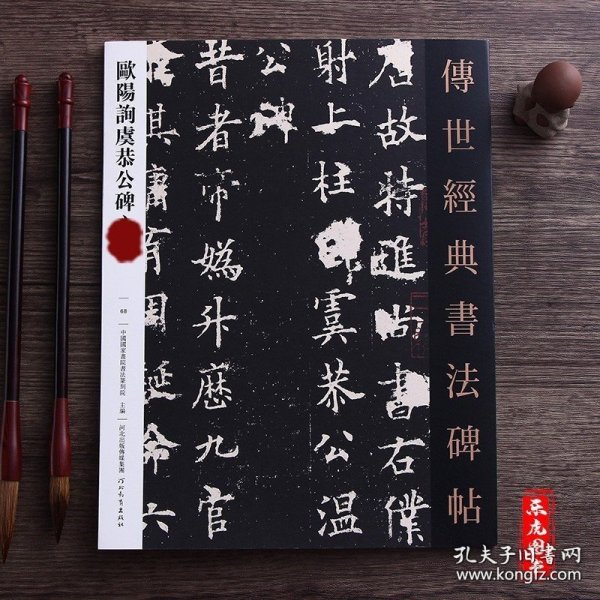 傳世經典書法碑帖
唐故特進尚書右僕
射上柱國虞恭公温
公碑
昔者帝媯升歷九官
命其庸有周延命六
歐陽詢虞恭公碑
68
中國國家畫院書法篆刻院 主編
河北出版傳媒集團
河北教育出版社
孔夫子旧书网
www.kongfz.com